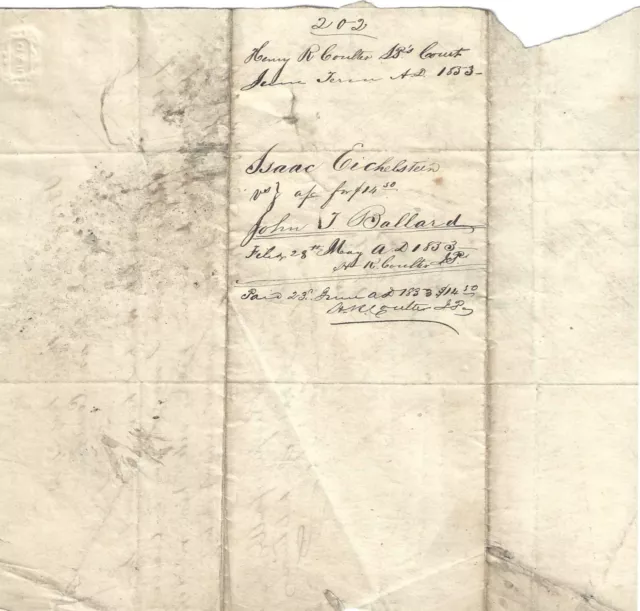 202
Henry R Coulter JP's Court
June Term A.D. 1853
Isaac Eichelstein
vs } a/c for $14 50
John T Ballard
Filed 28th May A D 1853
H R Coulter JP
Paid 23d June A D 1853 $14 50
H R Coulter JP